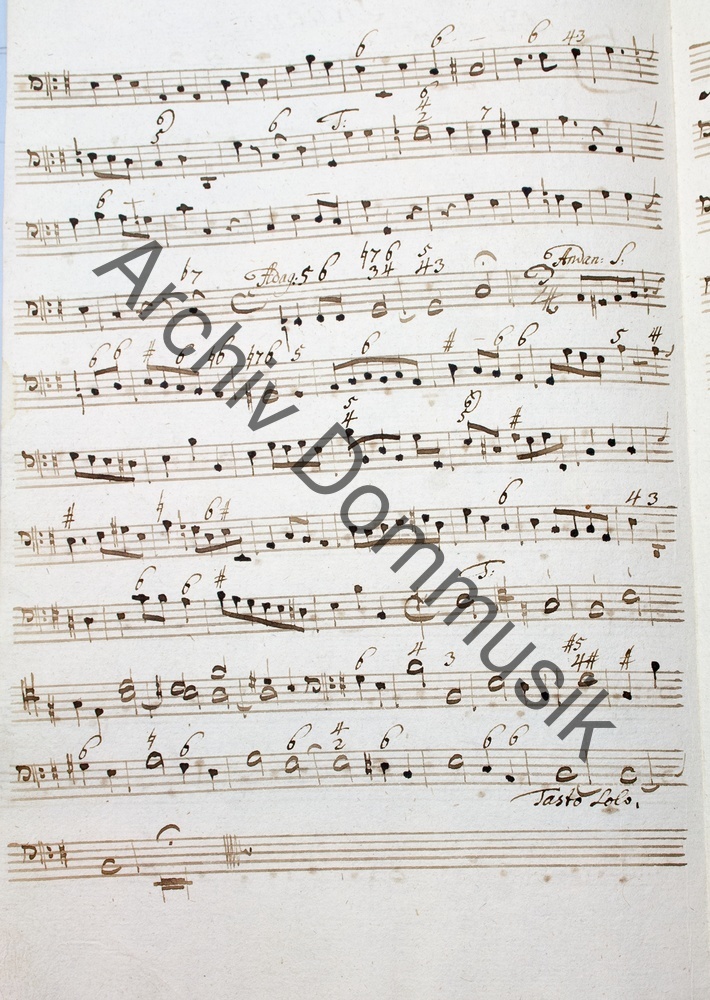 6 6 6 43
6 5 6 T: 6 4 2 7
6
♭7 Adag: 5 6 ♮7 6 3 4 5 43 Andan: S:
6 6 # 6 ♮6 ♮7 6 5 6 # 6 6 5 4
5 4 6 5 #
# ♮ 6 # 6 4 3
6 6 # T:
6 4 3 #5 4# #
6 6 ♮ 6 6 4 2 6 6 6
Tasto Solo.
Archiv Dommusik